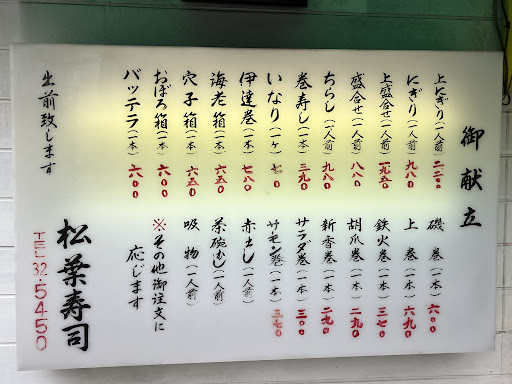 御献立
上にぎり(一人前)二二〇〇
にぎり(一人前)九八〇
上盛合せ(一人前)一九五〇
盛合せ(一人前)八八〇
ちらし(一人前)九八〇
巻寿し(一本)三九〇
いなり(一ケ)七〇
伊達巻(一本)七八〇
海老箱(一本)六五〇
穴子箱(一本)六五〇
おぼろ箱(一本)六〇〇
バッテラ(一本)六〇〇
磯巻(一本)六〇〇
上巻(一本)六九〇
鉄火巻(一本)三七〇
胡瓜巻(一本)二九〇
新香巻(一本)二九〇
サラダ巻(一本)三〇〇
サーモン巻(一本)三七〇
赤出し(一人前)
茶碗むし(一人前)
吸物(一人前)
※その他御注文に
応じます
出前致します
松葉寿司
TEL32-5450